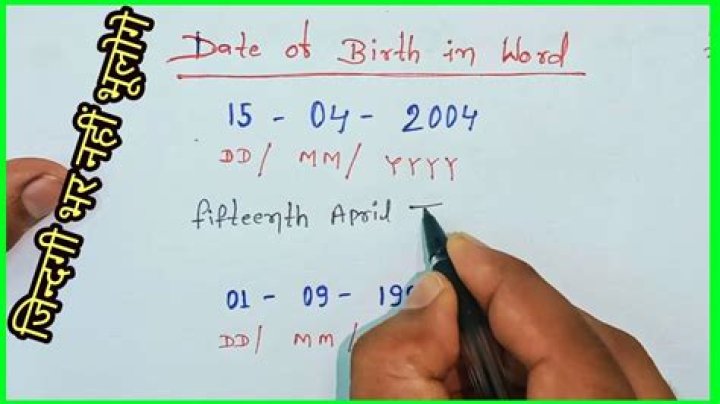 Date of Birth in Word
15 - 04 - 2004
DD / MM / YYYY
fifteenth April T
01 - 09 - 19
DD / MM /
जिन्दगी भर नहीं भूलोगे